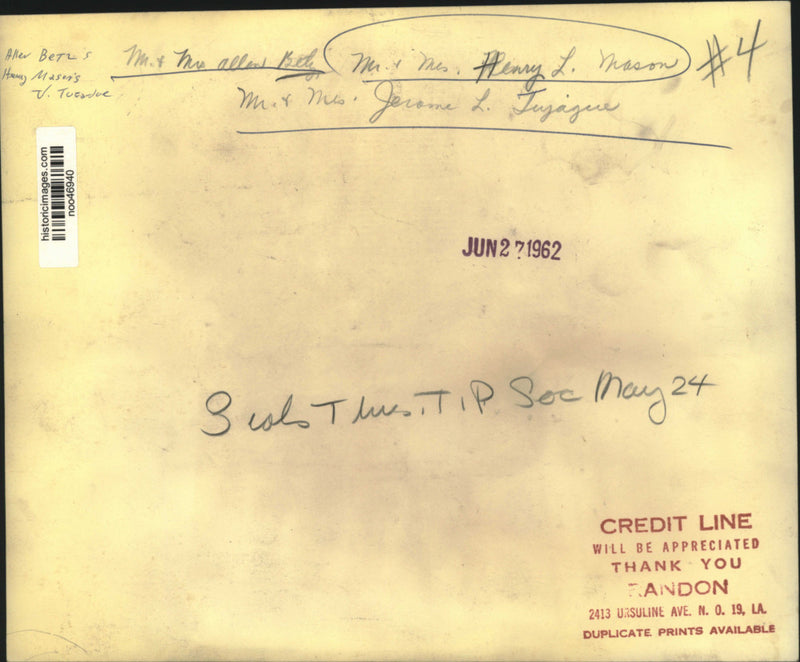 Allen Betz's
Henry Mason's
J. Tujague
Mr. & Mrs Allen Betz
Mr. & Mrs. Henry L. Mason
#4
Mr. & Mrs. Jerome L. Tujague
historicimages.com
noo46940
JUN 27 1962
3 cols Thurs. T.P. Soc May 24
CREDIT LINE
WILL BE APPRECIATED
THANK YOU
RANDON
2413 URSULINE AVE. N. O. 19, LA.
DUPLICATE PRINTS AVAILABLE